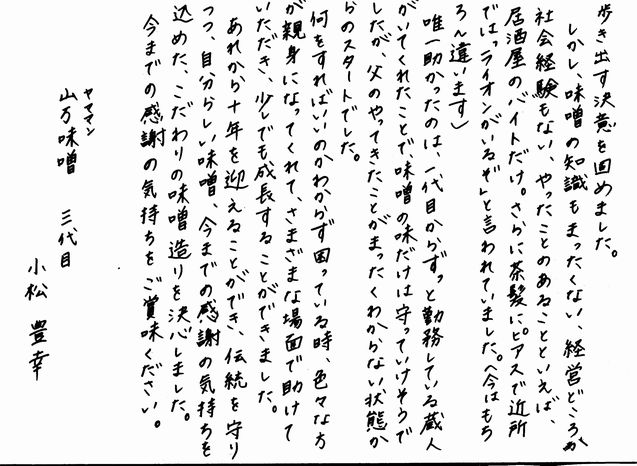 歩き出す決意を固めました。
しかし、味噌の知識もまったくない、経営どころか
社会経験もない、やったことのあることといえば、
居酒屋のバイトだけ。さらに茶髪にピアスで近所
では「ライオンがいるぞ」と言われていました。(今はもち
ろん違います)
唯一助かったのは、一代目からずっと勤務している蔵人
がいてくれたことで味噌の味だけは守っていけそうで
したが、父のやってきたことがまったくわからない状態か
らのスタートでした。
何をすればいいのかわからず困っている時、色々な方
が親身になってくれて、さまざまな場面で助けて
いただき、少しでも成長することができました。
あれから十年を迎えることができ、伝統を守り
つつ、自分らしい味噌、今までの感謝の気持ちを
込めた、こだわりの味噌造りを決心しました。
今までの感謝の気持ちをご賞味ください。
ヤママン
山万味噌 三代目
小松 豊幸